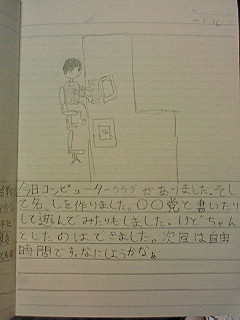 -1.16
今日コンピュータークラブがありました。そし
て名しを作りました。〇〇党と書いたり
して遊んでみたりもしました。けどちゃん
としたのはできました。次回は自由
時間です。なにしようかなぁ